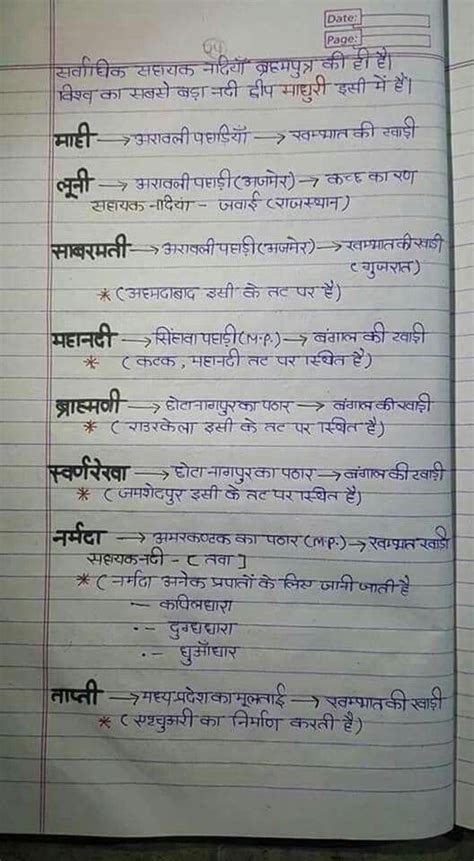 Date:
Page:
सर्वाधिक सहायक नदियाँ ब्रह्मपुत्र की ही है।
विश्व का सबसे बड़ा नदी द्वीप माधुरी इसी में है।
माही → अरावली पहाड़ियाँ → खम्भात की खाड़ी
लूनी → अरावली पहाड़ी (अजमेर) → कच्छ का रण
सहायक नदियां - जवाई (राजस्थान)
साबरमती → अरावली पहाड़ी (अजमेर) → खम्भात की खाड़ी
(गुजरात)
* (अहमदाबाद इसी के तट पर है)
महानदी → सिंहावा पहाड़ी (M.P.) → बंगाल की खाड़ी
* (कटक, महानदी तट पर स्थित है)
ब्राह्मणी → छोटा नागपुर का पठार → बंगाल की खाड़ी
* (राउरकेला इसी के तट पर स्थित है)
स्वर्णरेखा → छोटा नागपुर का पठार → बंगाल की खाड़ी
* (जमशेदपुर इसी के तट पर स्थित है)
नर्मदा → अमरकण्टक का पठार (M.P.) → खम्भात खाड़ी
सहायक नदी - [तवा]
* (नर्मदा अनेक प्रपातों के लिए जानी जाती है
- कपिलधारा
- दुग्धधारा
- धुआँधार
ताप्ती → मध्यप्रदेश का मूलताई → खम्भात की खाड़ी
* (एश्चुअरी का निर्माण करती है)